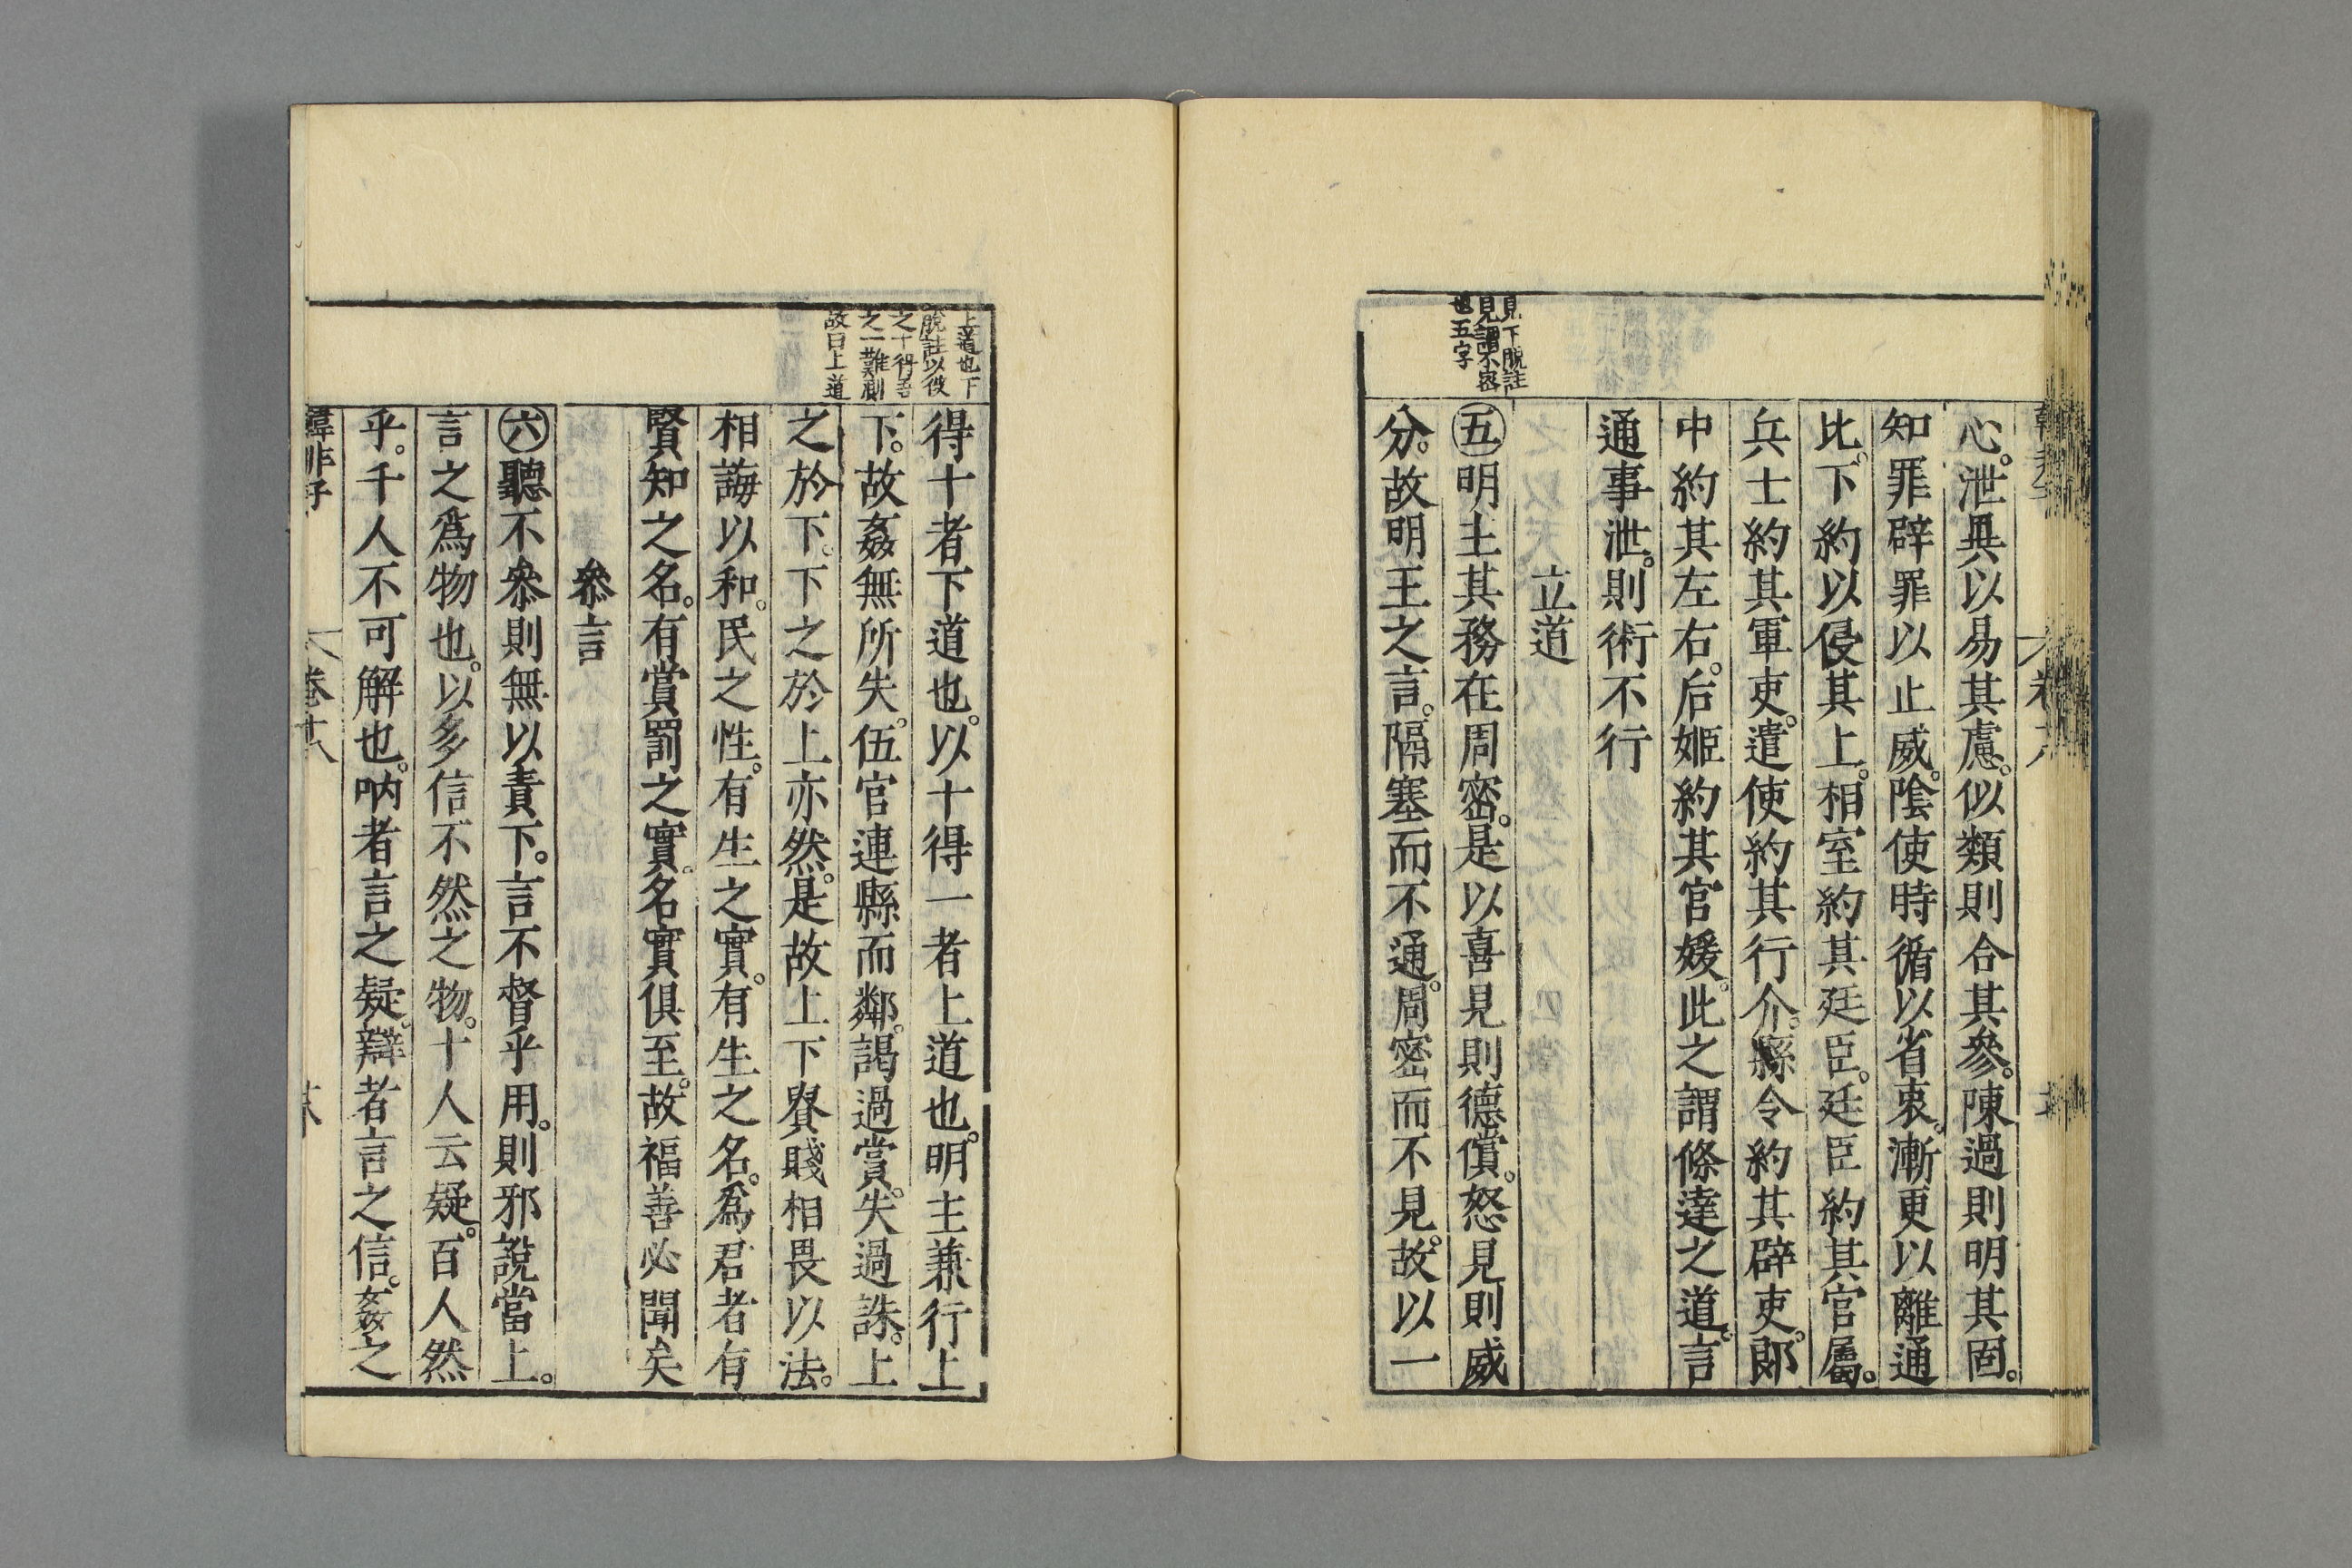 心。泄異以易其慮。似類則合其參。陳過則明其固。
知罪辟罪以止威。陰使時循以省衷。漸更以離通
比。下約以侵其上。相室約其廷臣。廷臣約其官屬。
兵士約其軍吏。遣使約其行介。縣令約其辟吏。郎
中約其左右。后姬約其官媛。此之謂條達之道。言
通事泄。則術不行
立道
見下脫註
見謂不密
也五字
㊄明主其務在周密。是以喜見則德償。怒見則威
分。故明王之言。隔塞而不通。周密而不見。故以一
上道也下
脫註以彼
之十得吾
之一難則
故曰上道
得十者下道也。以十得一者上道也。明主兼行上
下。故姦無所失。伍官連縣而鄰。謁過賞。失過誅。上
之於下。下之於上亦然。是故上下貴賤相畏以法。
相誨以和。民之性。有生之實。有生之名。爲君者有
賢知之名。有賞罰之實。名實俱至。故福善必聞矣
參言
㊅聽不參則無以責下。言不督乎用。則邪說當上。
言之爲物也。以多信不然之物。十人云疑。百人然
乎。千人不可解也。吶者言之疑。辯者言之信。姦之
韓非子
卷十八